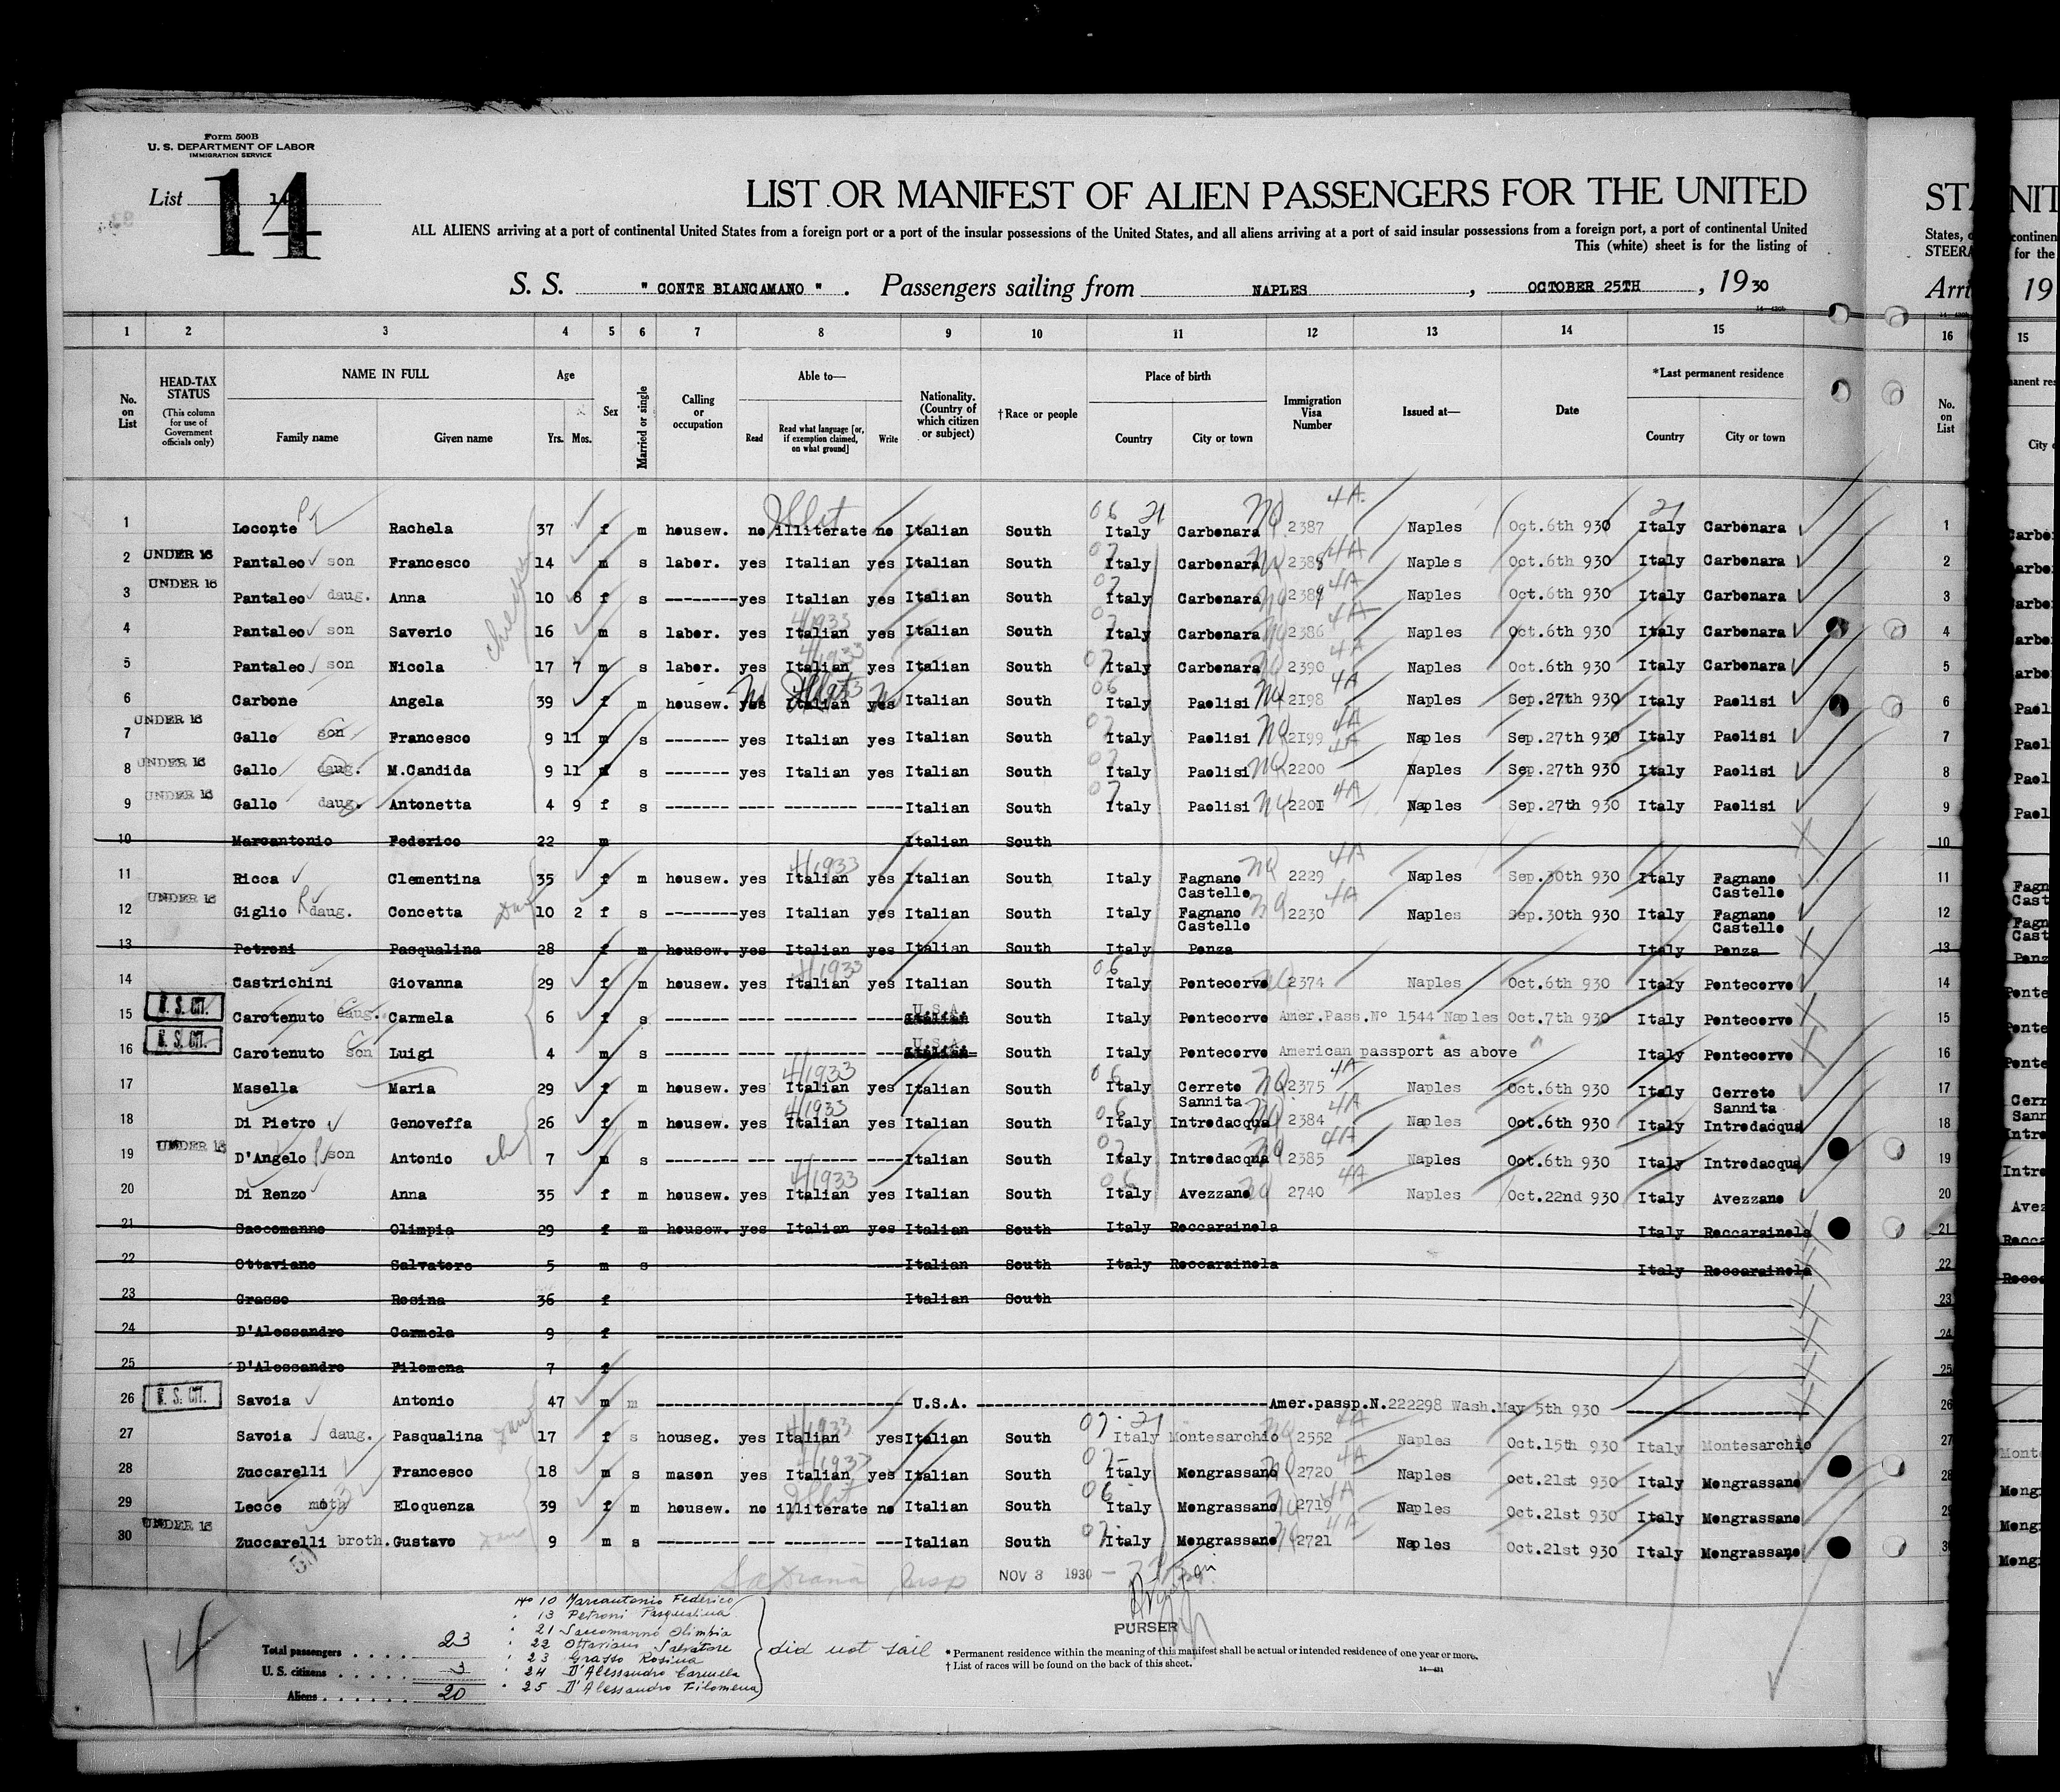 Form 500B
U. S. DEPARTMENT OF LABOR
IMMIGRATION SERVICE
List 14
14
LIST OR MANIFEST OF ALIEN PASSENGERS FOR THE UNITED
ALL ALIENS arriving at a port of continental United States from a foreign port or a port of the insular possessions of the United States, and all aliens arriving at a port of said insular possessions from a foreign port, a port of continental United
This (white) sheet is for the listing of
S. S. " CONTE BIANCAMANO " . Passengers sailing from NAPLES , OCTOBER 25TH , 1930
1 2 3 4 5 6 7 8 9 10 11 12 13 14 15
No. on List
HEAD-TAX STATUS (This column for use of Government officials only)
NAME IN FULL
Family name Given name
Age
Yrs. Mos.
Sex
Married or single
Calling or occupation
Able to—
Read Read what language [or, if exemption claimed, on what ground] Write
Nationality. (Country of which citizen or subject)
†Race or people
Place of birth
Country City or town
Immigration Visa Number
Issued at—
Date
*Last permanent residence
Country City or town
1 Loconte Rachela 37 f m housew. no illiterate no Italian South Italy Carbonara 2387 4A Naples Oct.6th 930 Italy Carbonara
2 UNDER 16 Pantaleo son Francesco 14 m s labor. yes Italian yes Italian South Italy Carbonara 2388 4A Naples Oct.6th 930 Italy Carbonara
3 UNDER 16 Pantaleo daug. Anna 10 8 f s -------- yes Italian yes Italian South Italy Carbonara 2389 4A Naples Oct.6th 930 Italy Carbonara
4 Pantaleo son Saverio 16 m s labor. yes 4/1933 Italian yes Italian South Italy Carbonara 2386 4A Naples Oct.6th 930 Italy Carbonara
5 Pantaleo son Nicola 17 7 m s labor. yes 4/1933 Italian yes Italian South Italy Carbonara 2390 4A Naples Oct.6th 930 Italy Carbonara
6 Carbone Angela 39 f m housew. yes Italian yes Italian South Italy Paolisi 2198 4A Naples Sep.27th 930 Italy Paolisi
7 UNDER 16 Gallo son Francesco 9 11 m s ------- yes Italian yes Italian South Italy Paolisi 2199 4A Naples Sep.27th 930 Italy Paolisi
8 UNDER 16 Gallo daug. M.Candida 9 11 f s ------- yes Italian yes Italian South Italy Paolisi 2200 4A Naples Sep.27th 930 Italy Paolisi
9 UNDER 16 Gallo daug. Antonetta 4 9 f s ------- ---- --------- ---- Italian South Italy Paolisi 2201 4A Naples Sep.27th 930 Italy Paolisi
10 Marcantonio Federico 22 m Italian South
11 Ricca Clementina 35 f m housew. yes 4/1933 Italian yes Italian South Italy Fagnano Castello 2229 4A Naples Sep.30th 930 Italy Fagnano Castello
12 UNDER 16 Giglio daug. Concetta 10 2 f s -------- yes Italian yes Italian South Italy Fagnano Castello 2230 4A Naples Sep.30th 930 Italy Fagnano Castello
13 Petroni Pasqualina 28 f m housew. yes Italian yes Italian South Italy Penza Italy Penza
14 Castrichini Giovanna 29 f m housew. yes 4/1933 Italian yes Italian South Italy Pontecorvo 2374 Naples Oct.6th 930 Italy Pontecorvo
15 U. S. CIT. Carotenuto daug. Carmela 6 f s ------- ---- --------- ---- U.S.A. Italian South Italy Pontecorvo Amer.Pass.Nº 1544 Naples Oct.7th 930 Italy Pontecorvo
16 U. S. CIT. Carotenuto son Luigi 4 m s ------- ---- --------- ---- U.S.A. Italian South Italy Pontecorvo American passport as above " Italy Pontecorvo
17 Masella Maria 29 f m housew. yes 4/1933 Italian yes Italian South Italy Cerreto Sannita 2375 4A Naples Oct.6th 930 Italy Cerreto Sannita
18 Di Pietro Genoveffa 26 f m housew. yes 4/1933 Italian yes Italian South Italy Introdacqua 2384 4A Naples Oct.6th 930 Italy Introdacqua
19 UNDER 16 D'Angelo son Antonio 7 m s -------- --- --------- ---- Italian South Italy Introdacqua 2385 4A Naples Oct.6th 930 Italy Introdacqua
20 Di Renzo Anna 35 f m housew. yes 4/1933 Italian yes Italian South Italy Avezzano 2740 4A Naples Oct.22nd 930 Italy Avezzano
21 Saccomanno Olimpia 29 f m housew. yes Italian yes Italian South Italy Roccarainola Italy Roccarainola
22 Ottaviano Salvatore 5 m s Italian South Italy Roccarainola Italy Roccarainola
23 Grasso Rosina 36 f Italian South
24 D'Alessandro Carmela 9 f
25 D'Alessandro Filomena 7 f
26 U. S. CIT. Savoia Antonio 47 m m U.S.A. Amer.passp.N.222298 Wash.May 5th 930
27 Savoia daug. Pasqualina 17 f s houseg. yes 4/1933 Italian yes Italian South Italy Montesarchio 2552 4A Naples Oct.15th 930 Italy Montesarchio
28 Zuccarelli Francesco 18 m s mason yes 4/1933 Italian yes Italian South Italy Mongrassano 2720 4A Naples oct.21st 930 Italy Mongrassano
29 Lecce moth Eloquenza 39 f m housew. no illiterate no Italian South Italy Mongrassano 2719 4A Naples Oct.21st 930 Italy Mongrassano
30 UNDER 16 Zuccarelli broth. Gustavo 9 m s -------- --- --------- ---- Italian South Italy Mongrassano 2721 4A Naples Oct.21st 930 Italy Mongrassano
NOV 3 1930
PURSER
14
Total passengers . . . . 23
U. S. citizens . . . . . 3
Aliens . . . . . . 20
No 10 Marcantonio Federico
" 13 Petroni Pasqualina
" 21 Saccomanno Olimbia
" 22 Ottaviano Salvatore
" 23 Grasso Rosina
" 24 D'Alessandro Carmela
" 25 D'Alessandro Filomena
did not sail
* Permanent residence within the meaning of this manifest shall be actual or intended residence of one year or more.
† List of races will be found on the back of this sheet.
14—421